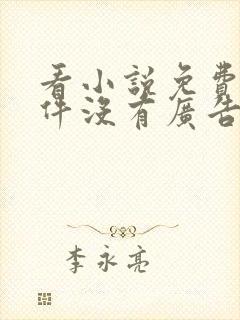 看小說免費
件沒有廣告
李永亮